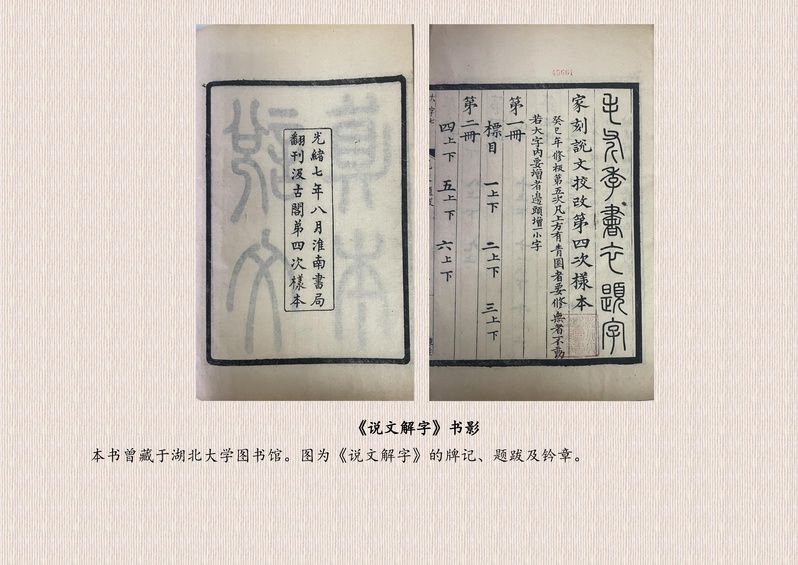 光緒七年八月淮南書局
翻刊汲古閣第四次樣本
45661
毛斧季書衣題字
家刻說文校改第四次樣本
癸巳年修板第五次凡上方有青圈者要修無者不動
若大字內要增者邊頭增一小字
第一冊
標目 一上下 二上下 三上下
第二冊
四上下 五上下 六上下
《说文解字》书影
本书曾藏于湖北大学图书馆。图为《说文解字》的牌记、题跋及钤章。